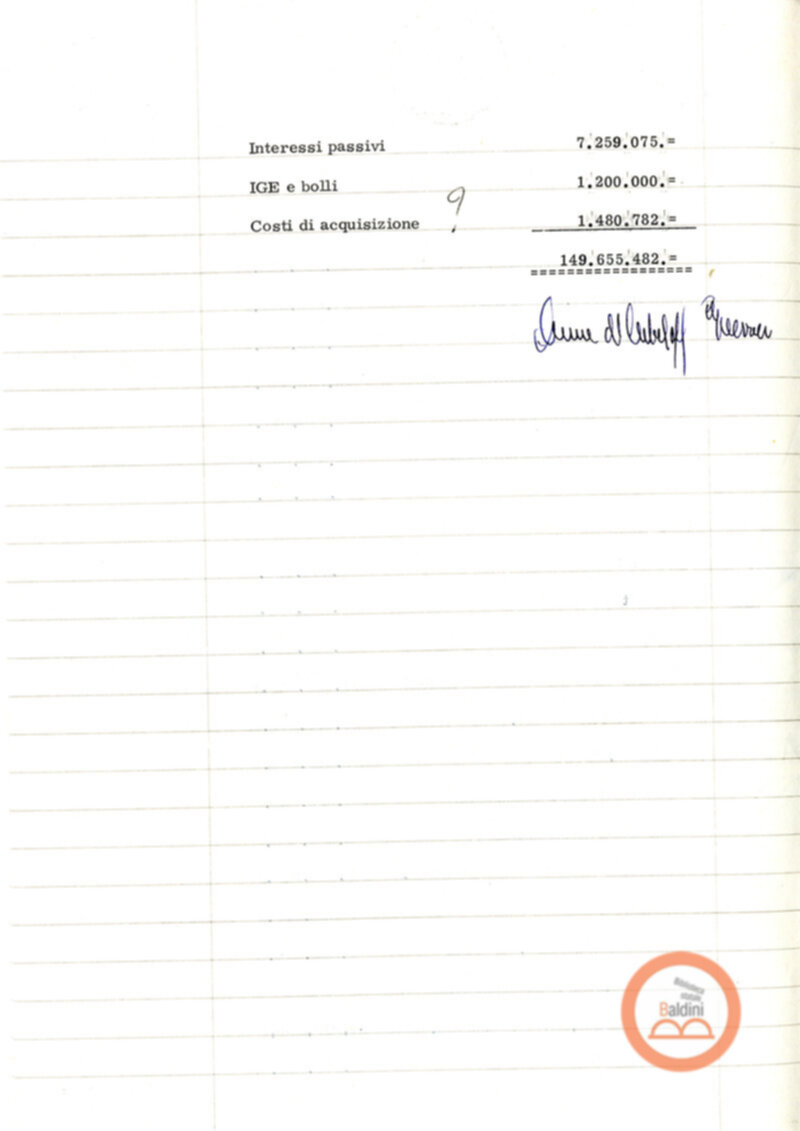 Interessi passivi 7.259.075.=
IGE e bolli 1.200.000.=
Costi di acquisizione ? 1.480.782.=
149.655.482.=
Biblioteca
statale
Baldini